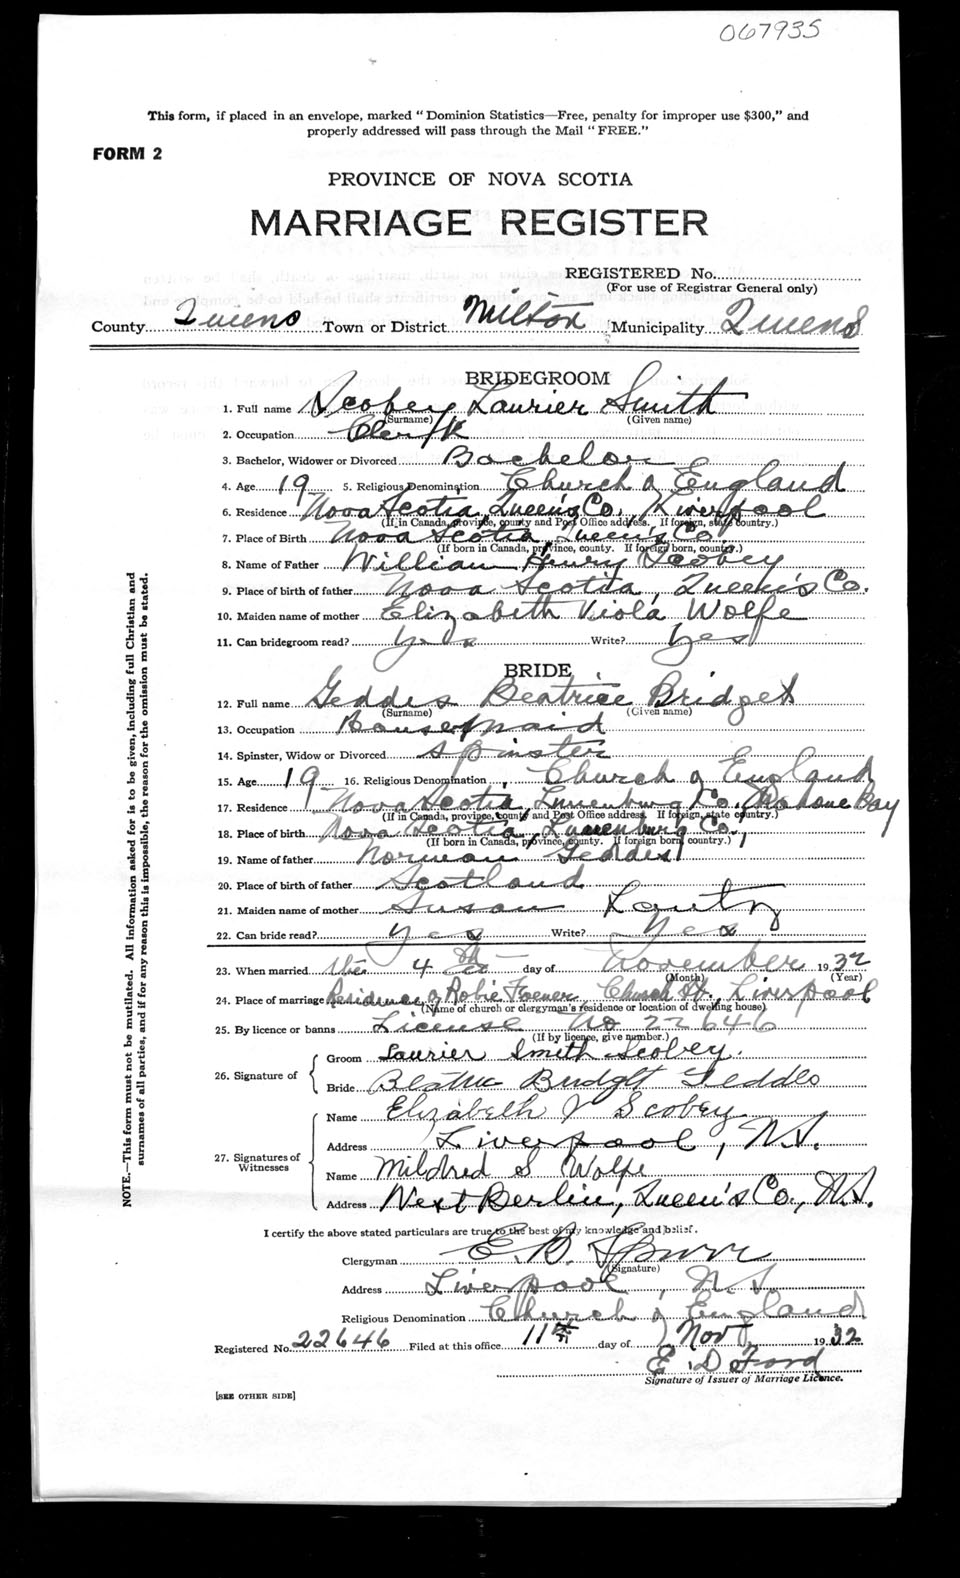 067935
This form, if placed in an envelope, marked "Dominion Statistics—Free, penalty for improper use $300," and
properly addressed will pass through the Mail "FREE."
FORM 2
PROVINCE OF NOVA SCOTIA
MARRIAGE REGISTER
REGISTERED No.
(For use of Registrar General only)
County Queens Town or District Milton Municipality Queens
BRIDEGROOM
1. Full name Scobey Laurier Smith
(Surname) (Given name)
2. Occupation Clerk
3. Bachelor, Widower or Divorced Bachelor
4. Age 19 5. Religious Denomination Church of England
6. Residence Nova Scotia, Queen's Co., Liverpool
(If in Canada, province, county and Post Office address. If foreign, state country.)
7. Place of Birth Nova Scotia Queen's Co.
(If born in Canada, province, county. If foreign born, country.)
8. Name of Father William Henry Scobey
9. Place of birth of father Nova Scotia, Queen's Co.
10. Maiden name of mother Elizabeth Viola Wolfe
11. Can bridegroom read? Yes Write? Yes
BRIDE
12. Full name Geddes Beatrice Bridget
(Surname) (Given name)
13. Occupation Housemaid
14. Spinster, Widow or Divorced Spinster
15. Age 19 16. Religious Denomination Church of England
17. Residence Nova Scotia, Lunenburg Co. Mahone Bay
(If in Canada, province, county and Post Office address. If foreign, state country.)
18. Place of birth Nova Scotia, Lunenburg Co.,
(If born in Canada, province, county. If foreign born, country.)
19. Name of father Norman Geddes
20. Place of birth of father Scotland
21. Maiden name of mother Susan Lantz
22. Can bride read? Yes Write? Yes
23. When married the 4th day of November 1932
(Month) (Year)
24. Place of marriage Residence of Robie Church St., Liverpool
(Name of church or clergyman's residence or location of dwelling house)
25. By licence or banns License No 22646
(If by licence, give number.)
26. Signature of
Groom Laurier Smith Scobey.
Bride Beatrice Bridget Geddes
27. Signatures of Witnesses
Name Elizabeth V Scobey
Address Liverpool, N.S.
Name Mildred S Wolfe
Address West Berlin, Queen's Co., N.S.
I certify the above stated particulars are true to the best of my knowledge and belief.
Clergyman E. B. Spurr
(Signature)
Address Liverpool, N.S.
Religious Denomination Church of England
Registered No. 22646 Filed at this office 11th day of Nov 1932
E. D Ford
Signature of Issuer of Marriage Licence.
[SEE OTHER SIDE]
NOTE.—This form must not be mutilated. All information asked for is to be given, including full Christian and
surnames of all parties, and if for any reason this is impossible, the reason for the omission must be stated.